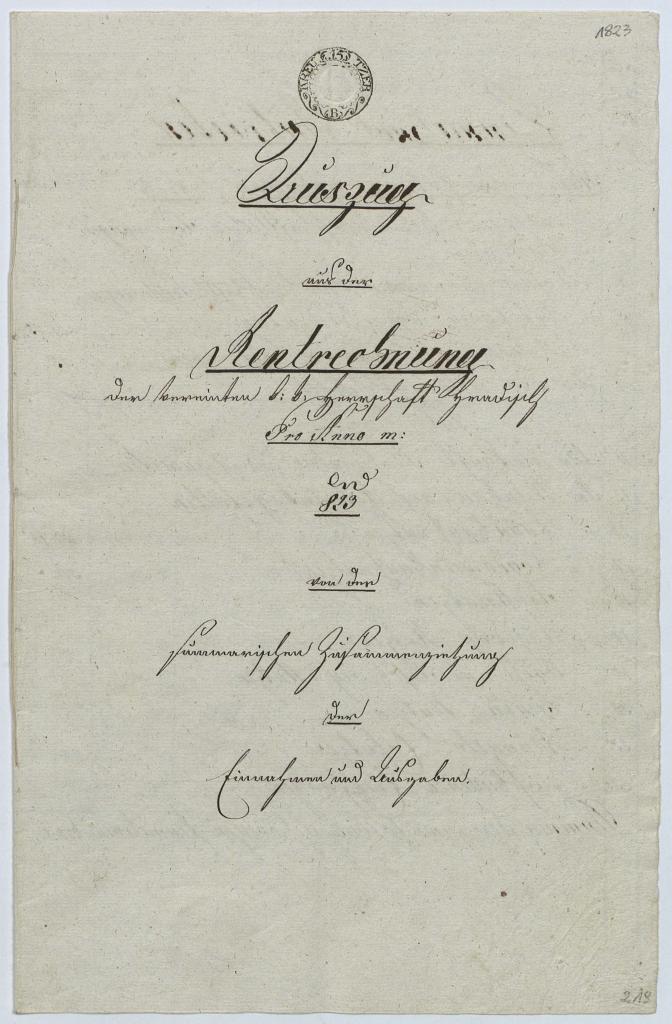 1823
15 KREUTZER B
Auszug
aus der
Rentrechnung
der vereinten k: k: Herrschaft Hradisch
Pro Anno m:
823
von der
summarischen Zusammenziehung
der
Einnahmen und Ausgaben.
218